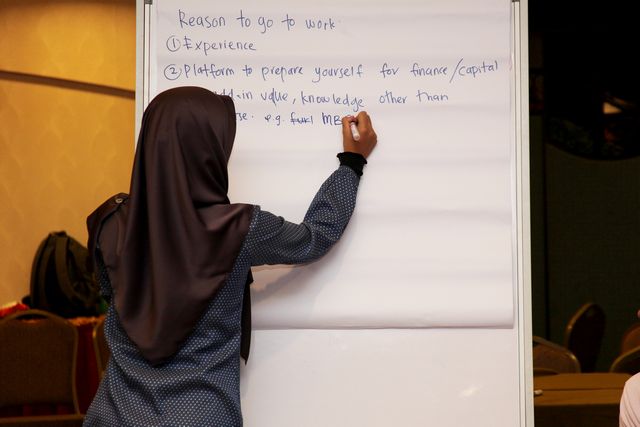 Reason to go to work
① Experience
② Platform to prepare yourself for finance/capital
in value, knowledge other than
e.g. MB